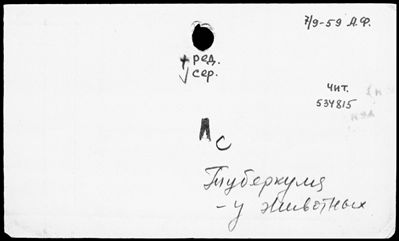 7/9-59 А.Ф.
+ ред.
√ сер.
Чит.
534815
Л
С
Туберкулез
- у животных